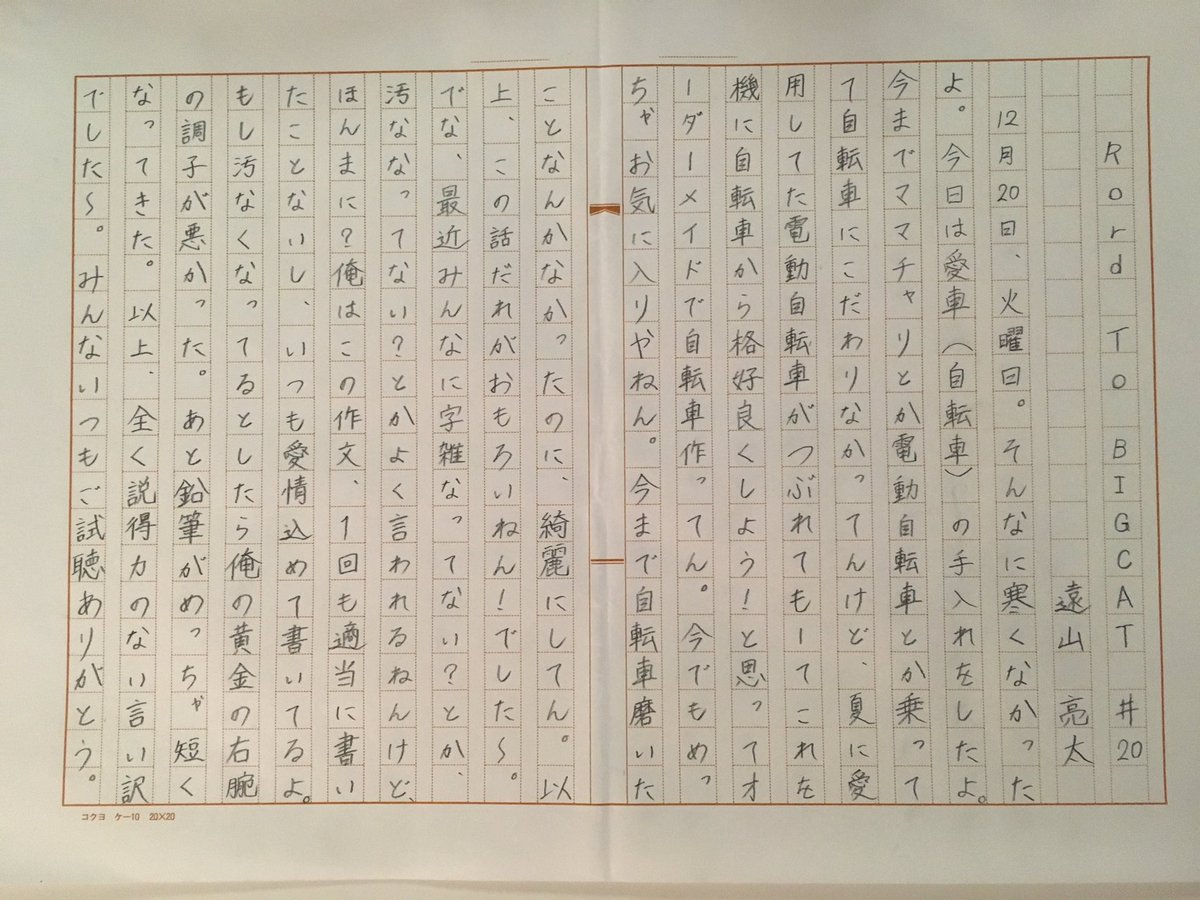 Rord To BIGCAT #20
遠山 亮太
12月20日、火曜日。そんなに寒くなかった
よ。今日は愛車(自転車)の手入れをしたよ。
今までママチャリとか電動自転車とか乗って
て自転車にこだわりなかってんけど、夏に愛
用してた電動自転車がつぶれてもーてこれを
機に自転車から格好良くしよう!と思ってオ
ーダーメイドで自転車作ってん。今でもめっ
ちゃお気に入りやねん。今まで自転車磨いた
ことなんかなかったのに、綺麗にしてん。以
上、この話だれがおもろいねん!でした〜。
でな、最近みんなに字雑なってない?とか、
汚ななってない?とかよく言われるねんけど、
ほんまに?俺はこの作文、1回も適当に書い
たことないし、いつも愛情込めて書いてるよ。
もし汚なくなってるとしたら俺の黄金の右腕
の調子が悪かった。あと鉛筆がめっちゃ短く
なってきた。以上、全く説得力のない言い訳
でした〜。みんないつもご試聴ありがとう。
コクヨ ケー10 20×20